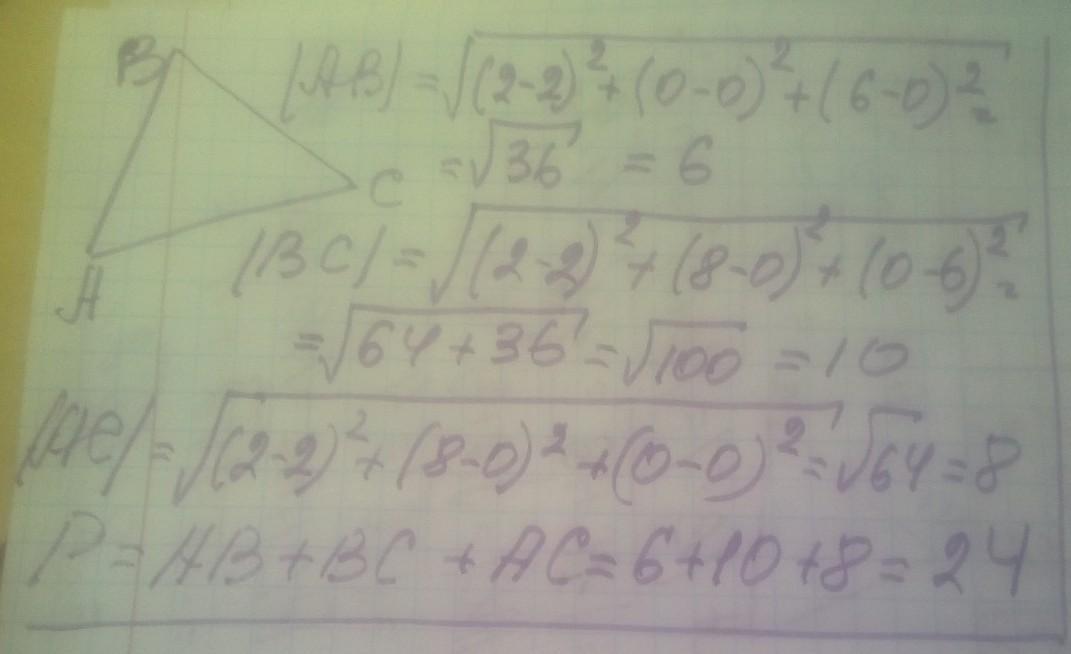 B
|AB| = √(2-2)² + (0-0)² + (6-0)² =
= √36 = 6
C
|BC| = √(2-2)² + (8-0)² + (0-6)² =
A
= √64 + 36 = √100 = 10
|AC| = √(2-2)² + (8-0)² + (0-0)² = √64 = 8
P = AB + BC + AC = 6 + 10 + 8 = 24